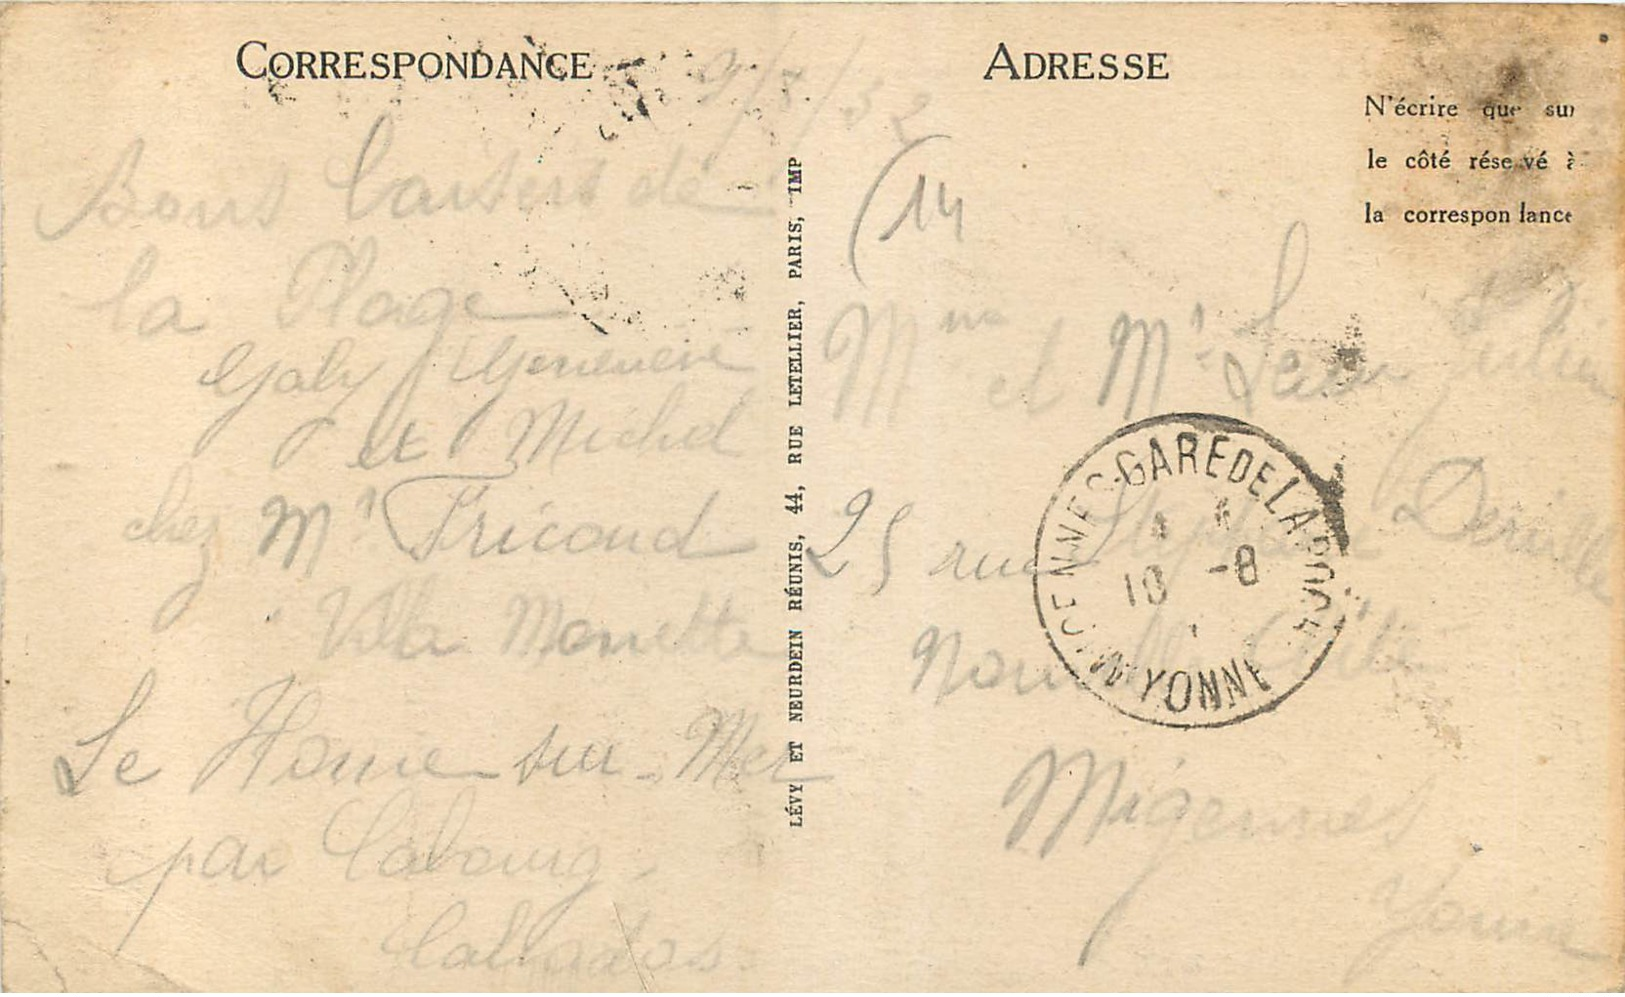 CORRESPONDANCE
9/8/32
Bons baisers de
la Plage
Gaby Geneviève
et Michel
chez Mr Fricaud
Villa Monette
Le Home sur-Mer
par Cabourg.
Calvados
LÉVY ET NEURDEIN RÉUNIS, 44, RUE LETELLIER, PARIS, IMP
ADRESSE
N'écrire que sur
le côté réservé à
la correspondance
(14
Mme et Mr
25 rue Deville
Nouvelle Cité
Migennes
Yonne
GARE DE LAROCHE
10 -8
YONNE